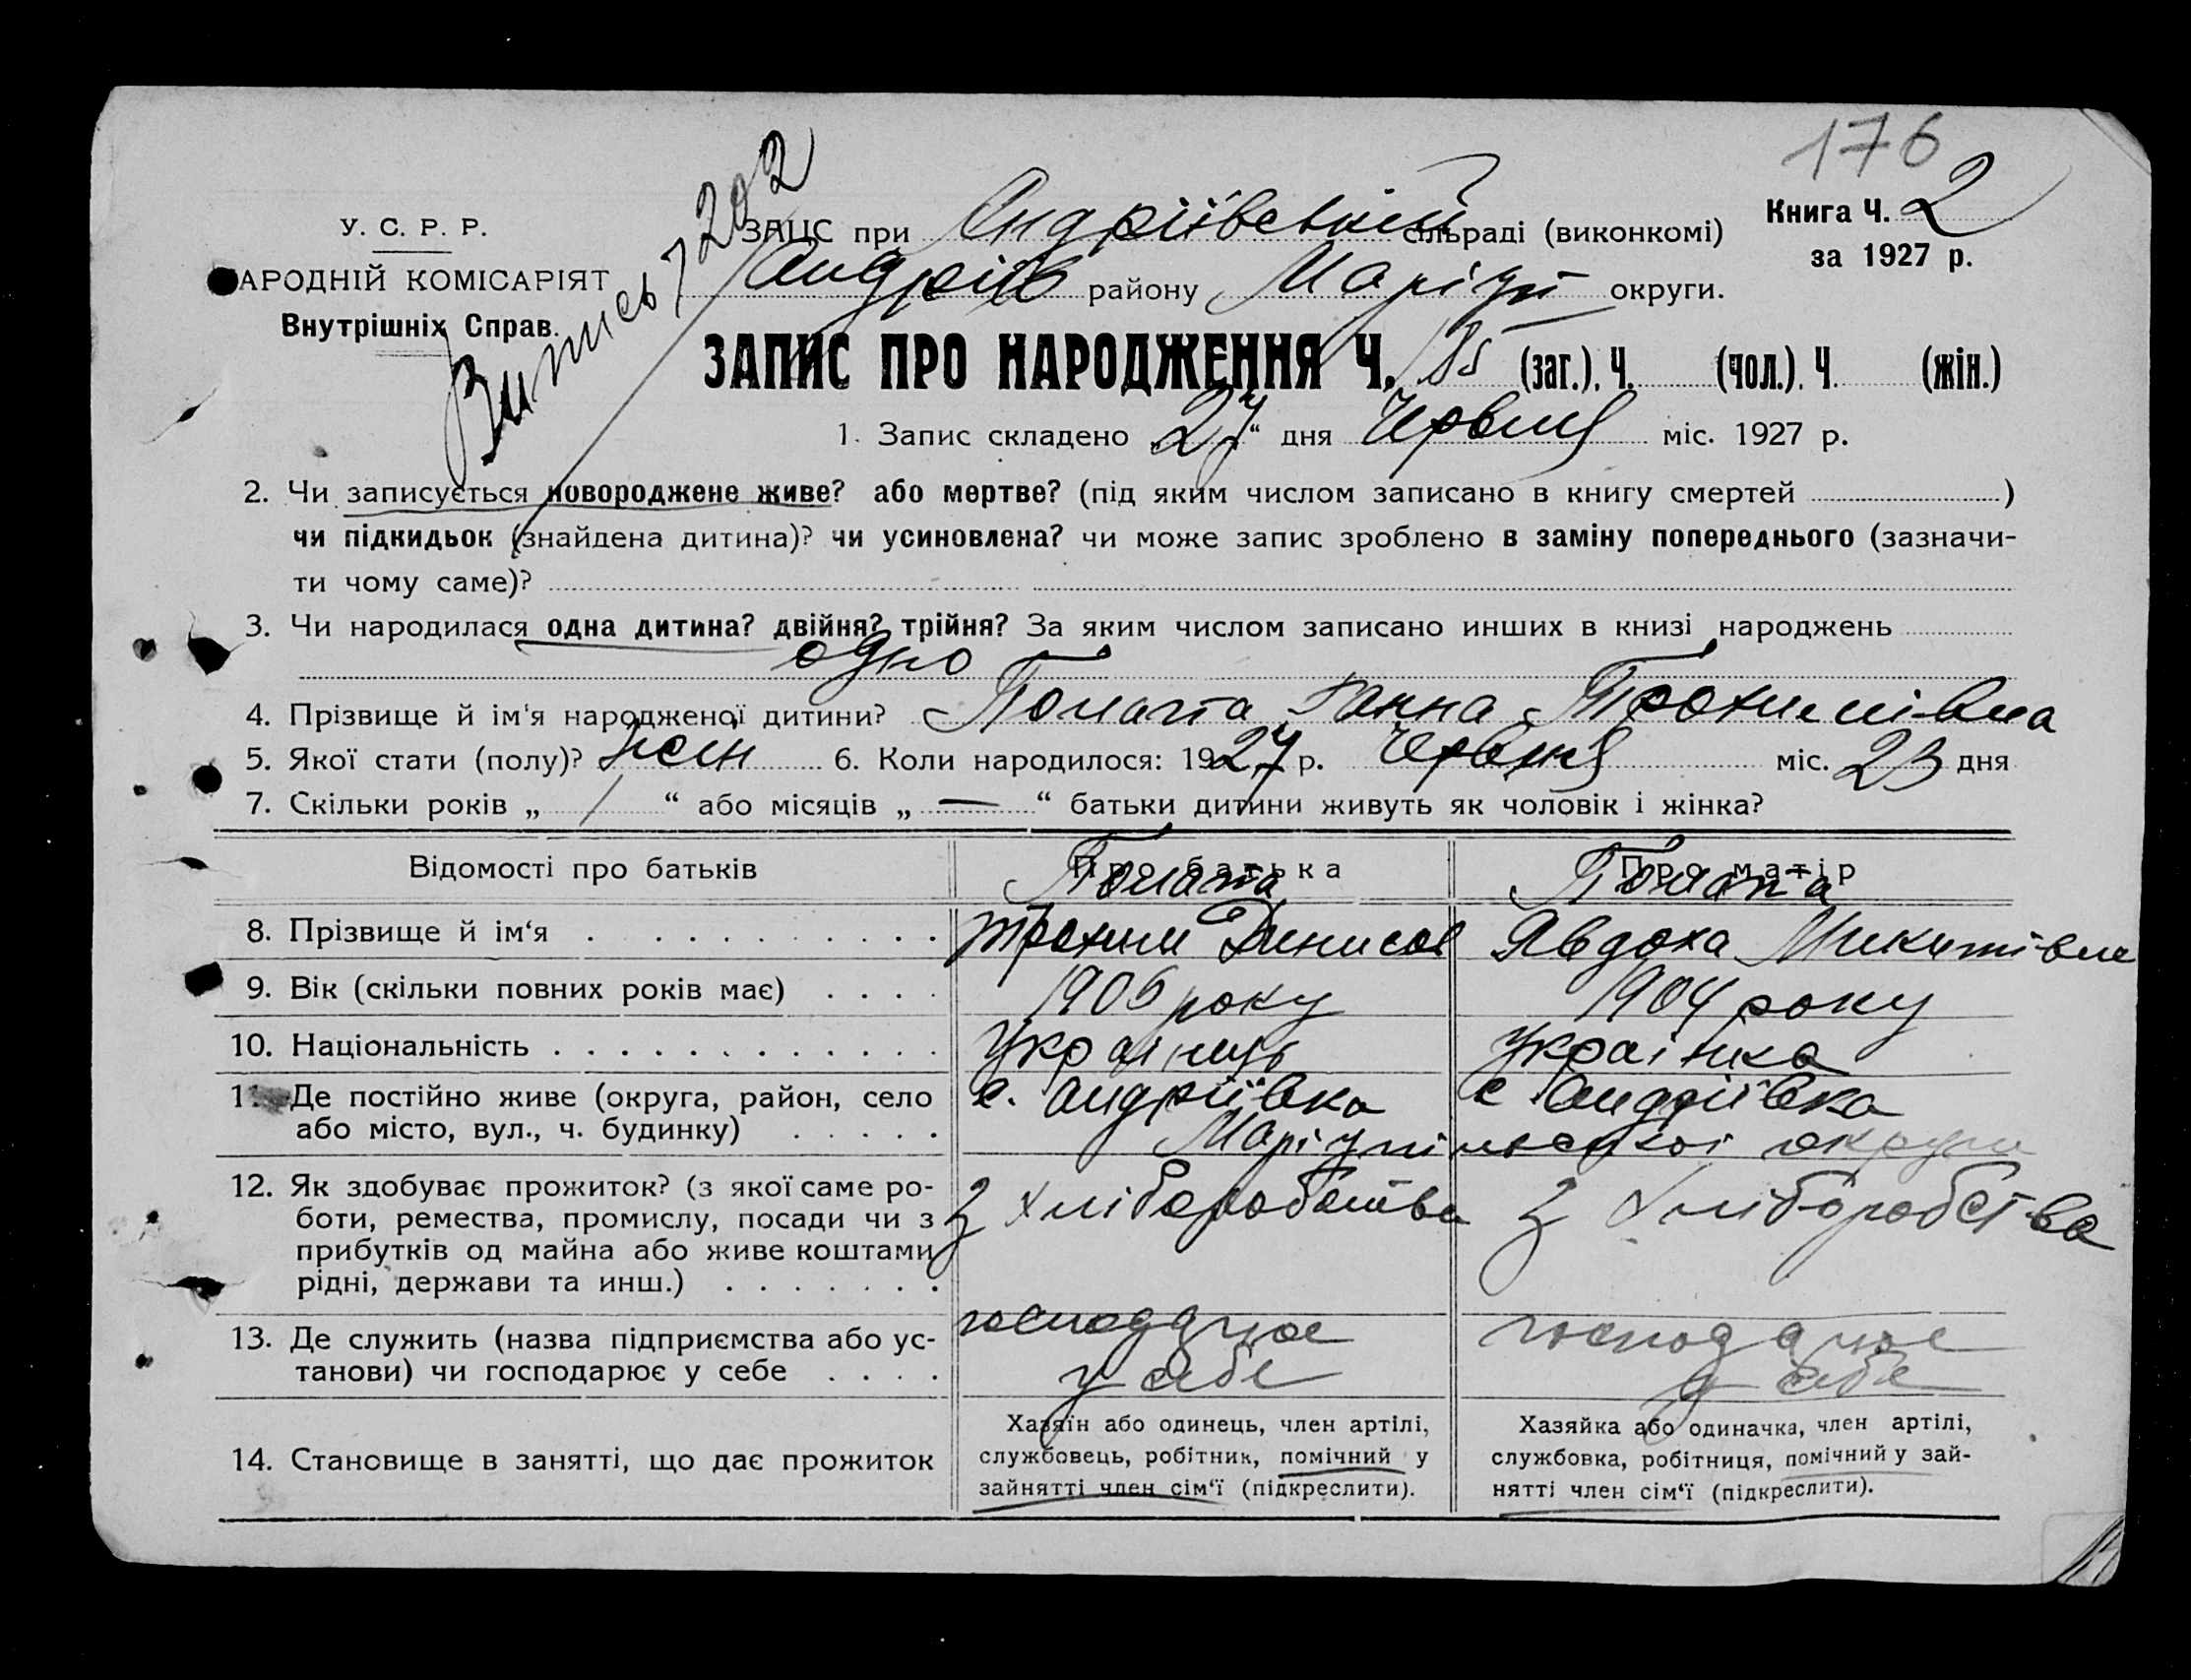 176
У. С. Р. Р.
ЗАЦС при Андріївській сільраді (виконкомі)
Книга Ч. 2
за 1927 р.
АРОДНІЙ КОМІСАРІЯТ
Внутрішніх Справ.
Андріїв району Маріуп округи.
Випись 7202
ЗАПИС ПРО НАРОДЖЕННЯ Ч. 185 (заг.). Ч. (чол.). Ч. (жін.)
1. Запис складено „27“ дня Червня міс. 1927 р.
2. Чи записується новороджене живе? або мертве? (під яким числом записано в книгу смертей )
чи підкидьок (знайдена дитина)? чи усиновлена? чи може запис зроблено в заміну попереднього (зазначи-
ти чому саме)?
3. Чи народилася одна дитина? двійня? трійня? За яким числом записано инших в книзі народжень
одно
4. Прізвище й ім'я народженої дитини? Ганна Трохимівна
5. Якої стати (полу)? жін 6. Коли народилося: 1927 р. Червня міс. 23 дня
7. Скільки років „ / “ або місяців „ — “ батьки дитини живуть як чоловік і жінка?
Відомості про батьків Про батька Про матір
8. Прізвище й ім‘я Трохим Динисов Явдоха Микитівна
9. Вік (скільки повних років має) 1905 року 1904 року
10. Національність Українець Українка
11. Де постійно живе (округа, район, село с. Андріївка с Андріївка
або місто, вул., ч. будинку) Маріупільської округи
12. Як здобуває прожиток? (з якої саме ро- З хліборобства З хліборобства
боти, ремества, промислу, посади чи з
прибутків од майна або живе коштами
рідні, держави та инш.)
13. Де служить (назва підприємства або ус- господарює господарює
танови) чи господарює у себе у себе у себе
14. Становище в занятті, що дає прожиток
Хазяїн або одинець, член артілі,
службовець, робітник, помічний у
зайнятті член сім‘ї (підкреслити).
Хазяйка або одиначка, член артілі,
службовка, робітниця, помічний у зай-
нятті член сім‘ї (підкреслити).